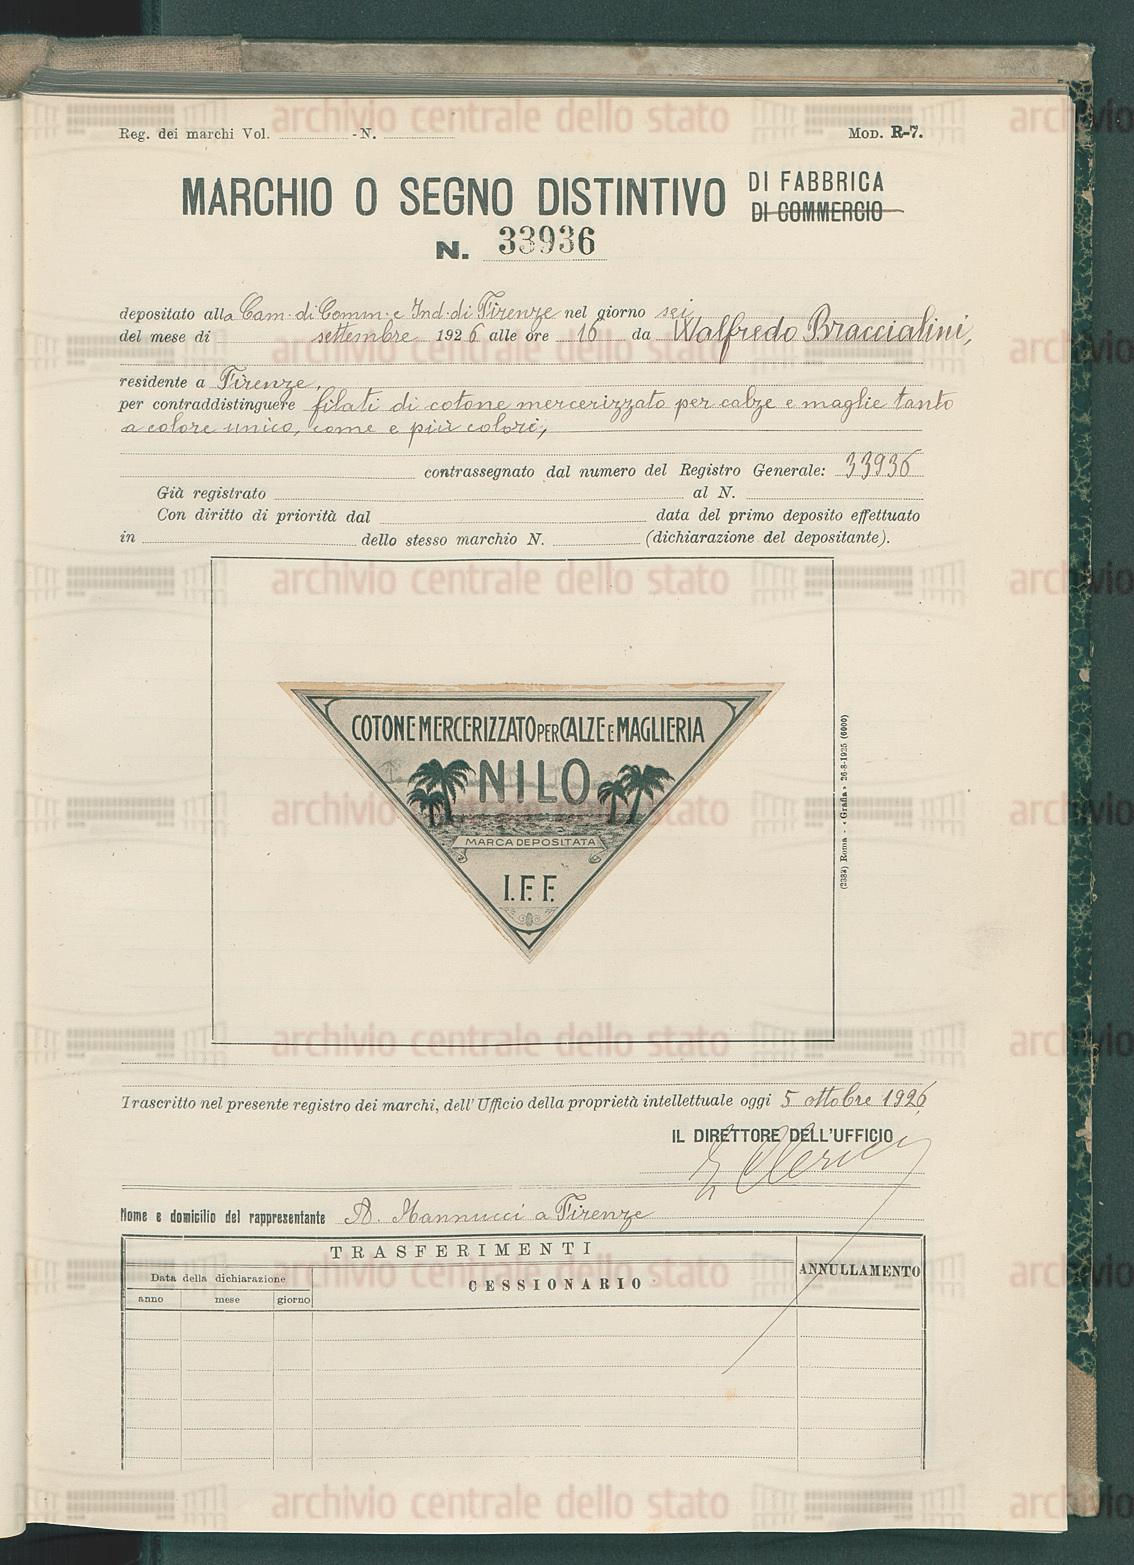 Reg. dei marchi Vol. - N. MOD. R-7.
MARCHIO O SEGNO DISTINTIVO DI FABBRICA
DI COMMERCIO
N. 33936
depositato alla Cam. di Comm. e Ind. di Firenze nel giorno sei
del mese di settembre 1926 alle ore 16 da Walfredo Braccialini,
residente a Firenze,
per contraddistinguere filati di cotone mercerizzato per calze e maglie tanto
a colore unico, come e più colori,
contrassegnato dal numero del Registro Generale: 33936
Già registrato al N.
Con diritto di priorità dal data del primo deposito effettuato
in dello stesso marchio N. (dichiarazione del depositante).
COTONE MERCERIZZATO PER CALZE E MAGLIERIA
NILO
MARCA DEPOSITATA
I.F.F.
(2383) Roma - « Grafia » 26-8-1925 (6000)
Trascritto nel presente registro dei marchi, dell'Ufficio della proprietà intellettuale oggi 5 ottobre 1926
IL DIRETTORE DELL'UFFICIO
Nome e domicilio del rappresentante A. Mannucci a Firenze
TRASFERIMENTI
Data della dichiarazione CESSIONARIO ANNULLAMENTO
anno mese giorno
archivio centrale dello stato